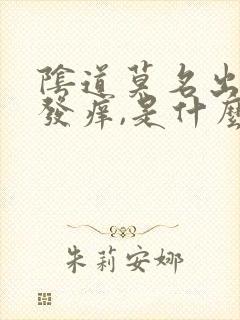 陰道莫名出
發痒,是什麼
朱莉安娜